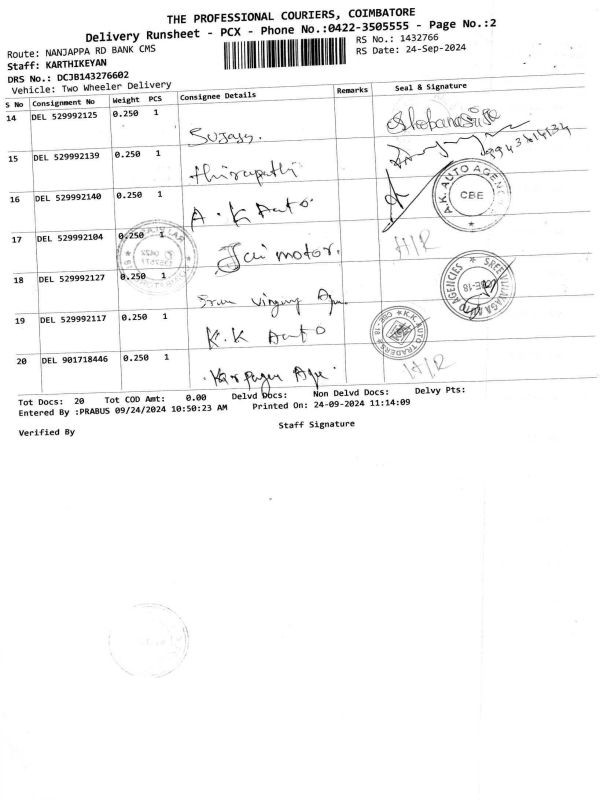 THE PROFESSIONAL COURIERS, COIMBATORE
Delivery Runsheet - PCX - Phone No.:0422-3505555 - Page No.:2
Route: NANJAPPA RD BANK CMS
RS No.: 1432766
Staff: KARTHIKEYAN
RS Date: 24-Sep-2024
DRS No.: DCJB143276602
Vehicle: Two Wheeler Delivery
S No Consignment No Weight PCS Consignee Details Remarks Seal & Signature
14 DEL 529992125 0.250 1
15 DEL 529992139 0.250 1 thirupathi
16 DEL 529992140 0.250 1 A.K Auto
A.K. AUTO AGENCIES
CBE
17 DEL 529992104 0.250 1 Jai motor.
H/R
18 DEL 529992127 0.250 1
SREE VIJINAGA AUTO AGENCIES
CBE-18
19 DEL 529992117 0.250 1 K.K Auto
K.K AUTO TRADERS
CBE-18
20 DEL 901718446 0.250 1
H/R
Tot Docs: 20 Tot COD Amt: 0.00 Delvd Docs: Non Delvd Docs: Delvy Pts:
Entered By :PRABUS 09/24/2024 10:50:23 AM Printed On: 24-09-2024 11:14:09
Verified By
Staff Signature